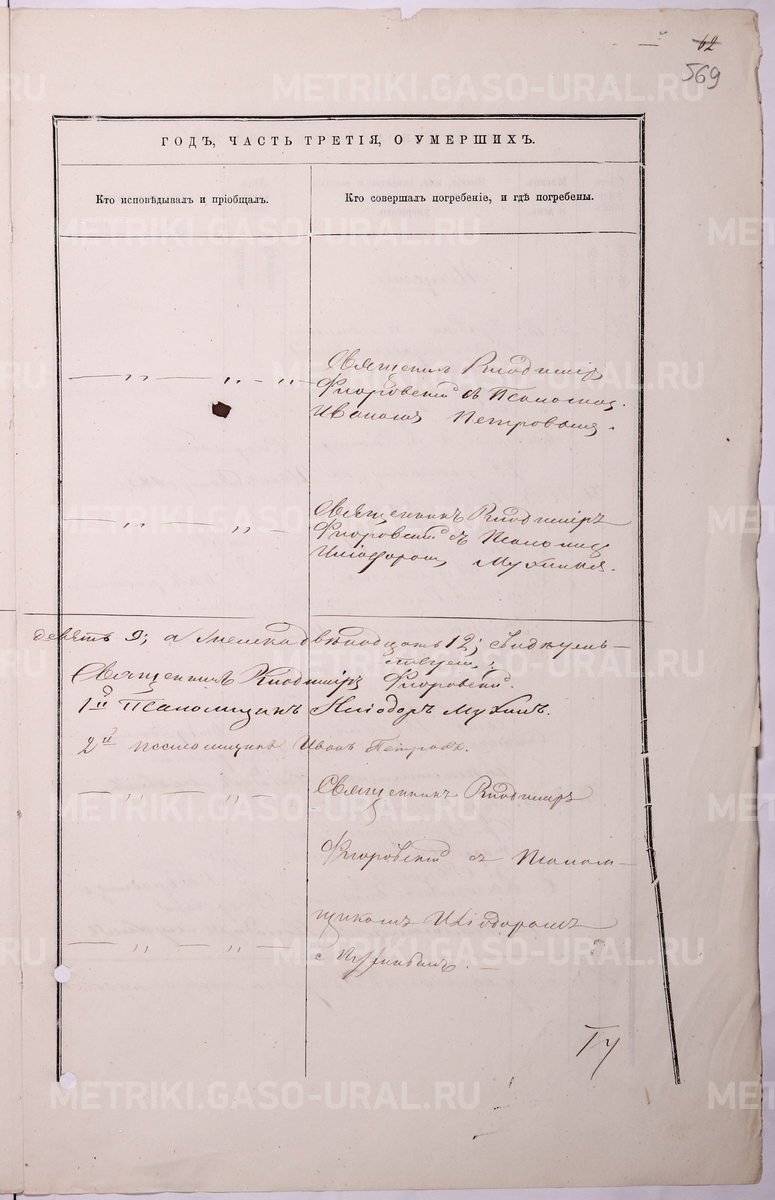 62
569
ГОДЪ, ЧАСТЬ ТРЕТІЯ, О УМЕРШИХЪ.
Кто исповѣдывалъ и пріобщалъ.
Кто совершалъ погребеніе, и гдѣ погребены.
Священникъ Владиміръ
Флоровскій съ Псаломщ.
Иваномъ Петровымъ.
Священникъ Владиміръ
Флоровскій съ Псаломщ
Иліодоромъ Мухинымъ.
девять 9; а женска двѣнадцать 12; Свидѣтель-
ствуемъ:
Священникъ Владиміръ Флоровскій.
1й Псаломщикъ Иліодоръ Мухинъ.
2й псаломщикъ Иванъ Петровъ.
Священникъ Владиміръ
Флоровскій съ Псалом-
щикомъ Иліодоромъ
Мухинымъ.
METRIKI.GASO-URAL.RU